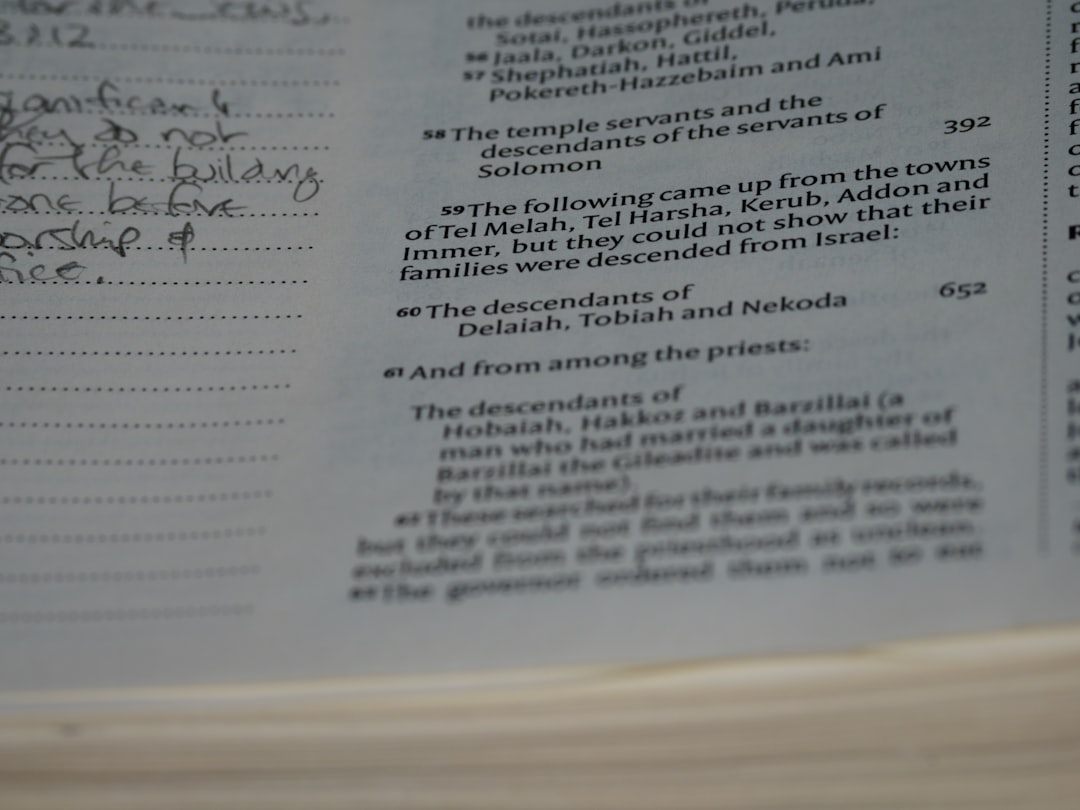 3.2.12
significant
they do not
for the building
before
worship &
the descendants of
Sotai, Hassophereth, Peruda,
56 Jaala, Darkon, Giddel,
57 Shephatiah, Hattil,
Pokereth-Hazzebaim and Ami
58 The temple servants and the
descendants of the servants of
Solomon 392
59 The following came up from the towns
of Tel Melah, Tel Harsha, Kerub, Addon and
Immer, but they could not show that their
families were descended from Israel:
60 The descendants of
Delaiah, Tobiah and Nekoda 652
61 And from among the priests:
The descendants of
Hobaiah, Hakkoz and Barzillai (a
man who had married a daughter of
Barzillai the Gileadite and was called
by that name).
62 These searched for their family records,
but they could not find them and so were
excluded from the priesthood as unclean.
63 The governor ordered them not to eat